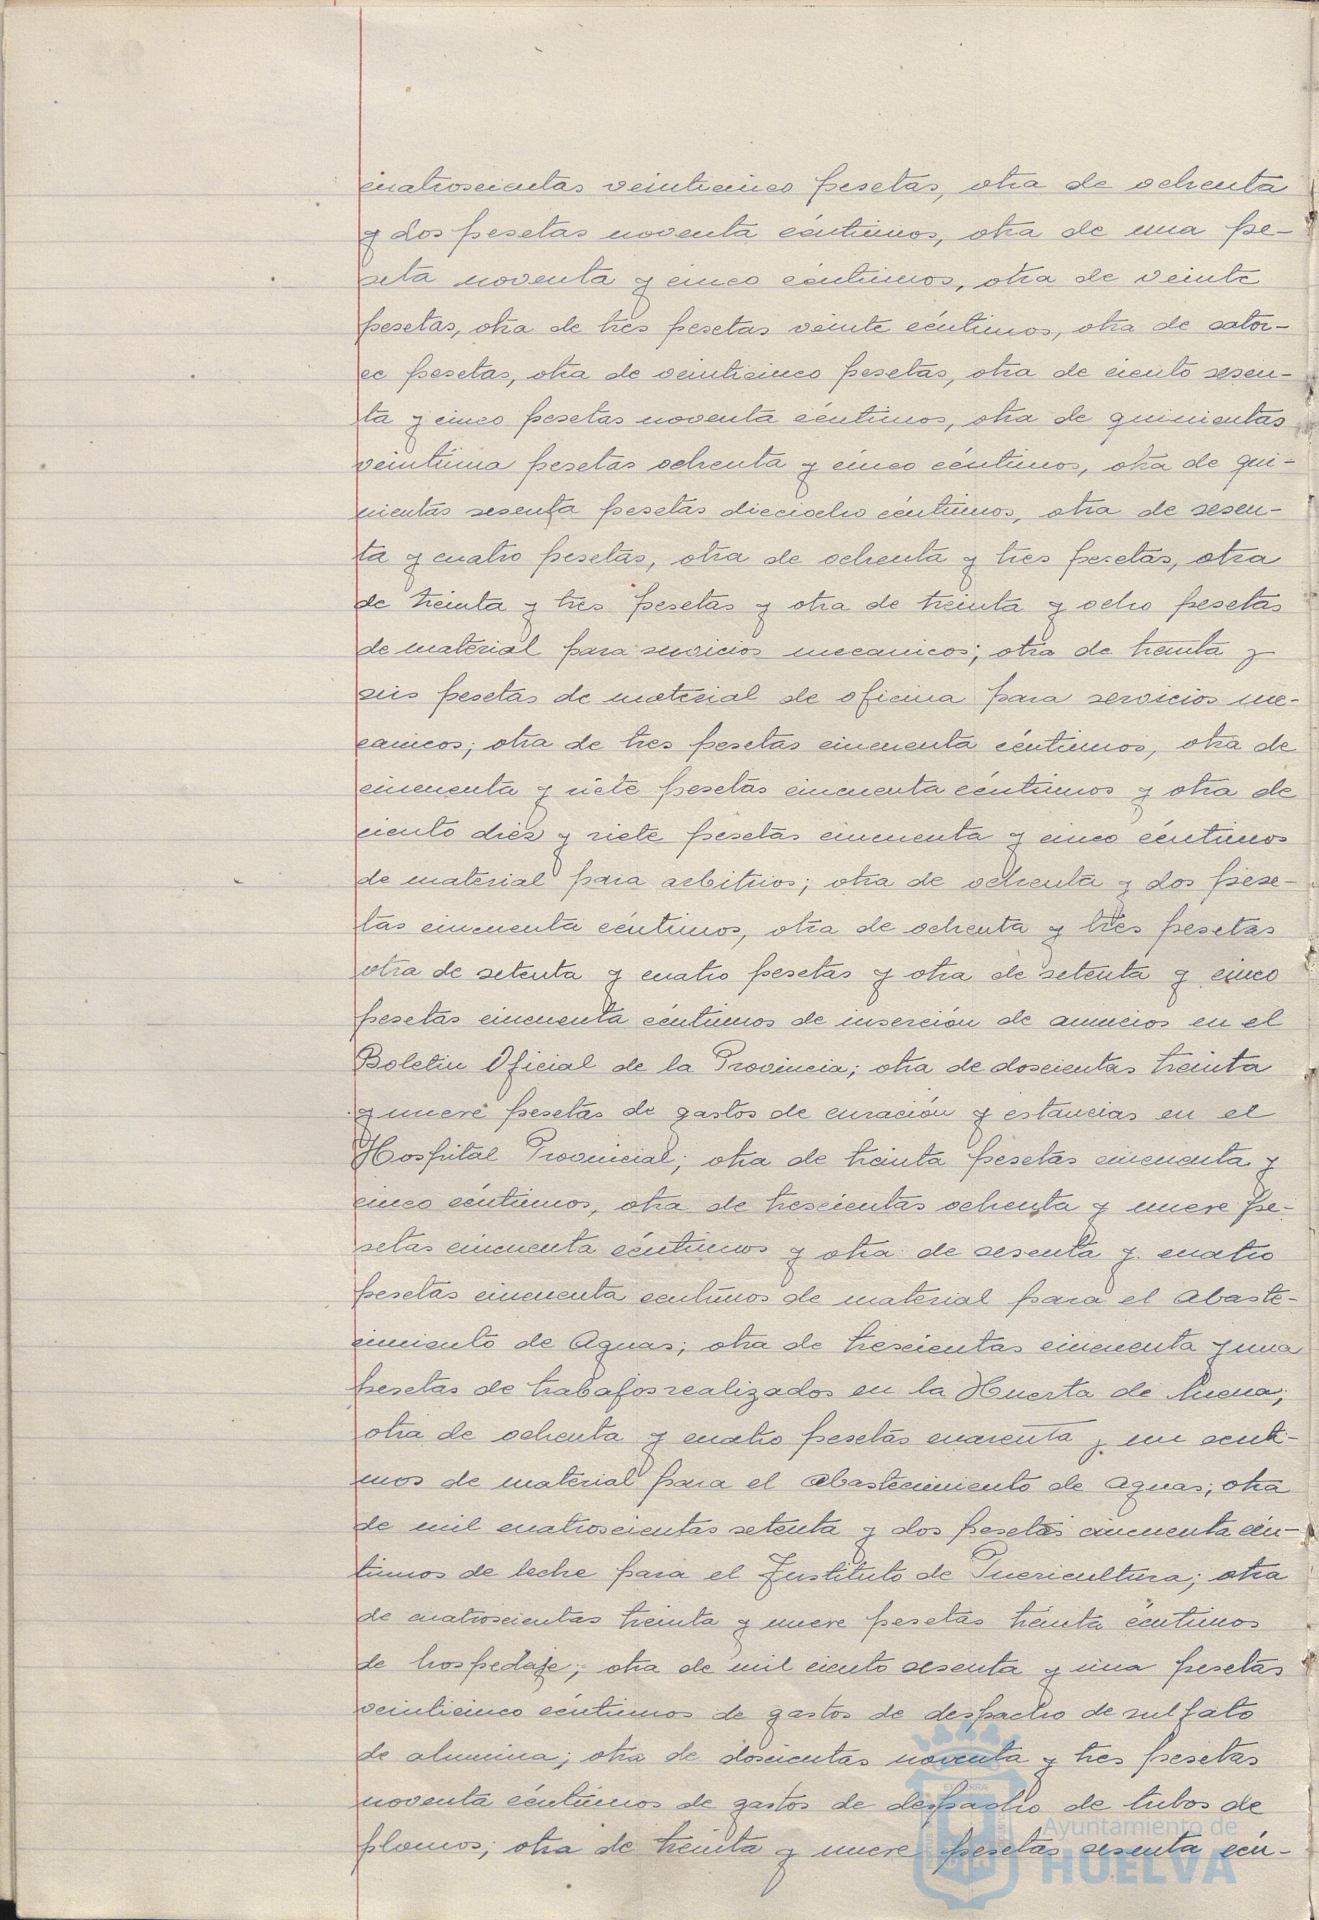 cuatroscientas veinticinco pesetas, otra de ochenta
y dos pesetas noventa céntimos, otra de una pe-
seta noventa y cinco céntimos, otra de veinte
pesetas, otra de tres pesetas veinte céntimos, otra de cator-
ce pesetas, otra de veinticinco pesetas, otra de ciento sesen-
ta y cinco pesetas noventa céntimos, otra de quinientas
veintiuna pesetas ochenta y cinco céntimos, otra de qui-
nientas sesenta pesetas dieciocho céntimos, otra de sesen-
ta y cuatro pesetas, otra de ochenta y tres pesetas, otra
de treinta y tres pesetas y otra de treinta y ocho pesetas
de material para servicios mecanicos; otra de treinta y
seis pesetas de material de oficina para servicios me-
canicos; otra de tres pesetas cincuenta céntimos, otra de
cincuenta y siete pesetas cincuenta céntimos y otra de
ciento diez y siete pesetas cincuenta y cinco céntimos
de material para arbitrios; otra de ochenta y dos pese-
tas cincuenta céntimos, otra de ochenta y tres pesetas
otra de setenta y cuatro pesetas y otra de setenta y cinco
pesetas cincuenta céntimos de inserción de anuncios en el
Boletin Oficial de la Provincia; otra de doscientas treinta
y nueve pesetas de gastos de curación y estancias en el
Hospital Provincial; otra de treinta pesetas cincuenta y
cinco céntimos, otra de trescientas ochenta y nueve pe-
setas cincuenta céntimos y otra de sesenta y cuatro
pesetas cincuenta centimos de material para el Abaste-
cimiento de Aguas; otra de trescientas cincuenta y una
pesetas de trabajos realizados en la Huerta de Mena;
otra de ochenta y cuatro pesetas cuarenta y un centi-
mos de material para el abastecimiento de aguas; otra
de mil cuatroscientas setenta y dos pesetas cincuenta cén-
timos de leche para el Instituto de Puericultura; otra
de cuatroscientas treinta y nueve pesetas treinta céntimos
de hospedaje; otra de mil ciento sesenta y una pesetas
veinticinco céntimos de gastos de despacho de sulfato
de alumina; otra de doscientas noventa y tres pesetas
noventa céntimos de gastos de despacho de tubos de
plomos; otra de treinta y nueve pesetas sesenta cén-
Ayuntamiento de
HUELVA